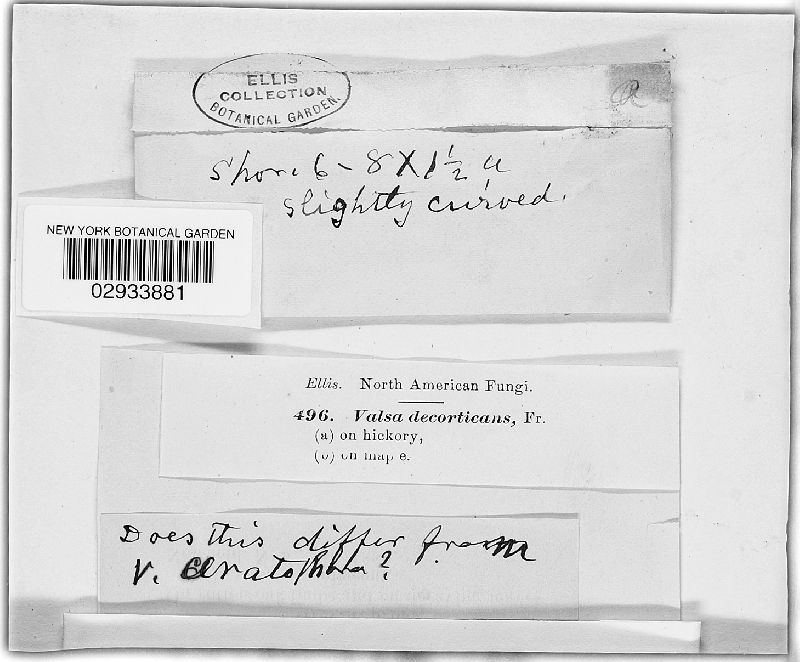 ELLIS
COLLECTION
BOTANICAL GARDEN.
R
Spore 6-8X1½ u
slightly curved.
NEW YORK BOTANICAL GARDEN
02933881
Ellis. North American Fungi.
496. Valsa decorticans, Fr.
(a) on hickory,
(b) on map e.
Does this differ from
V. ceratophora?